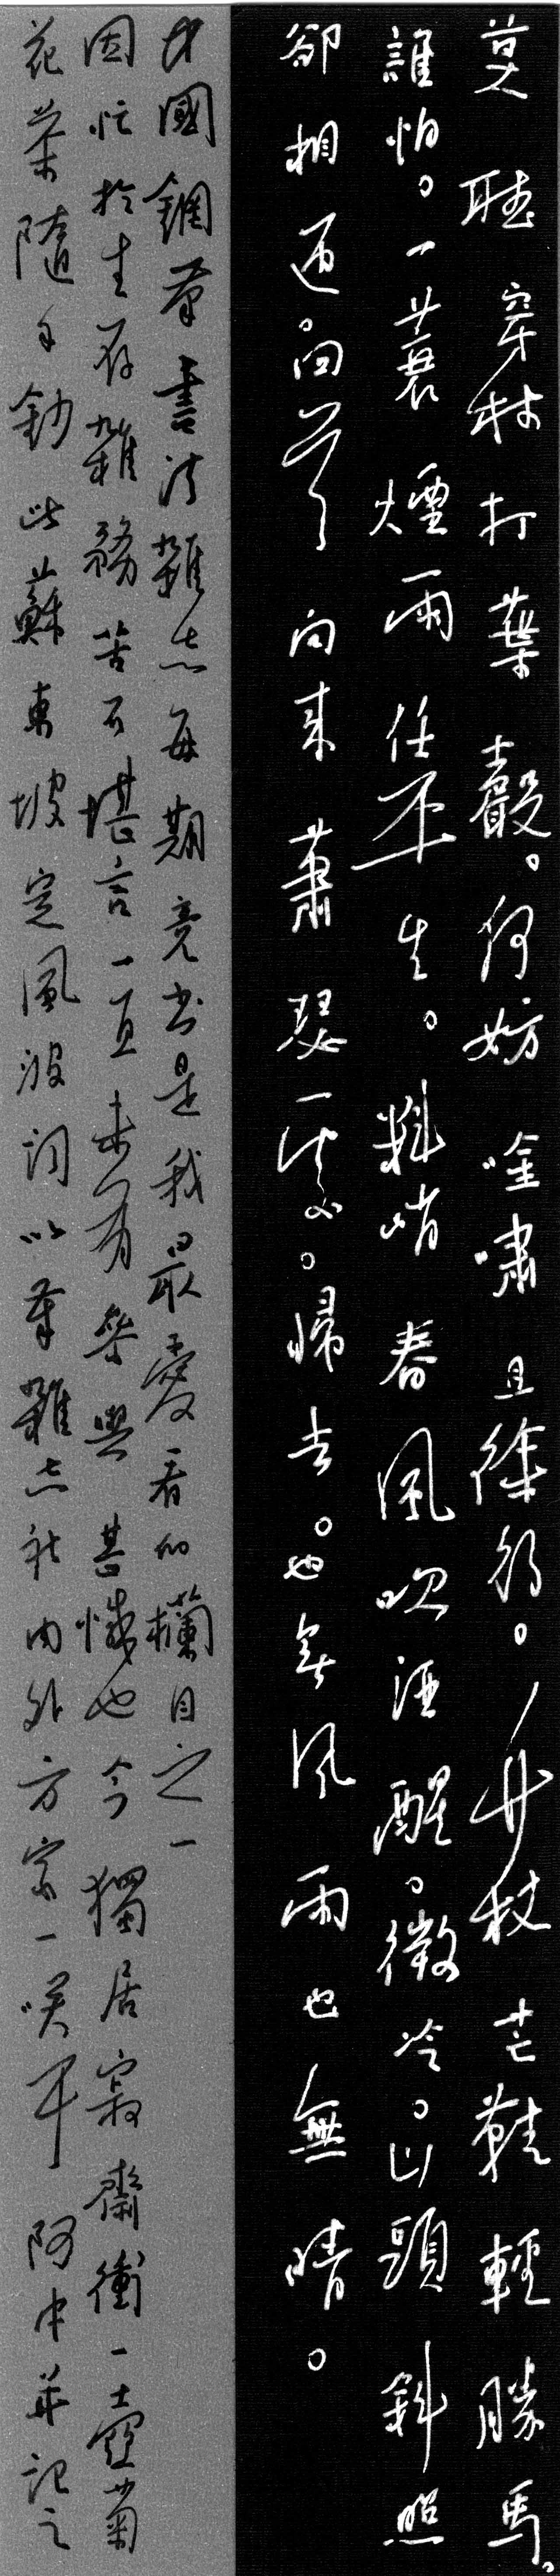 莫聽穿林打葉聲。何妨吟嘯且徐行。竹杖芒鞋輕勝馬。
誰怕。一蓑煙雨任平生。料峭春風吹酒醒。微冷。山頭斜照
卻相迎。回首向來蕭瑟處。歸去。也無風雨也無晴。
中國鋼筆書法雜志每期竞书是我最愛看的欄目之一
因忙於生存雜務苦不堪言一直未有參與甚憾也今獨居寂齋衝一壺菊
花茶隨手鈔此蘇東坡定風波詞以奉雜志社内外方家一咲耳阿中并記之